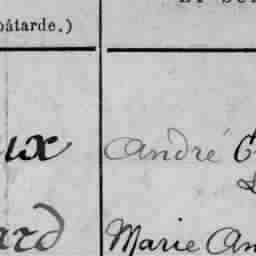 bâtarde.)
ux André
ard Marie An